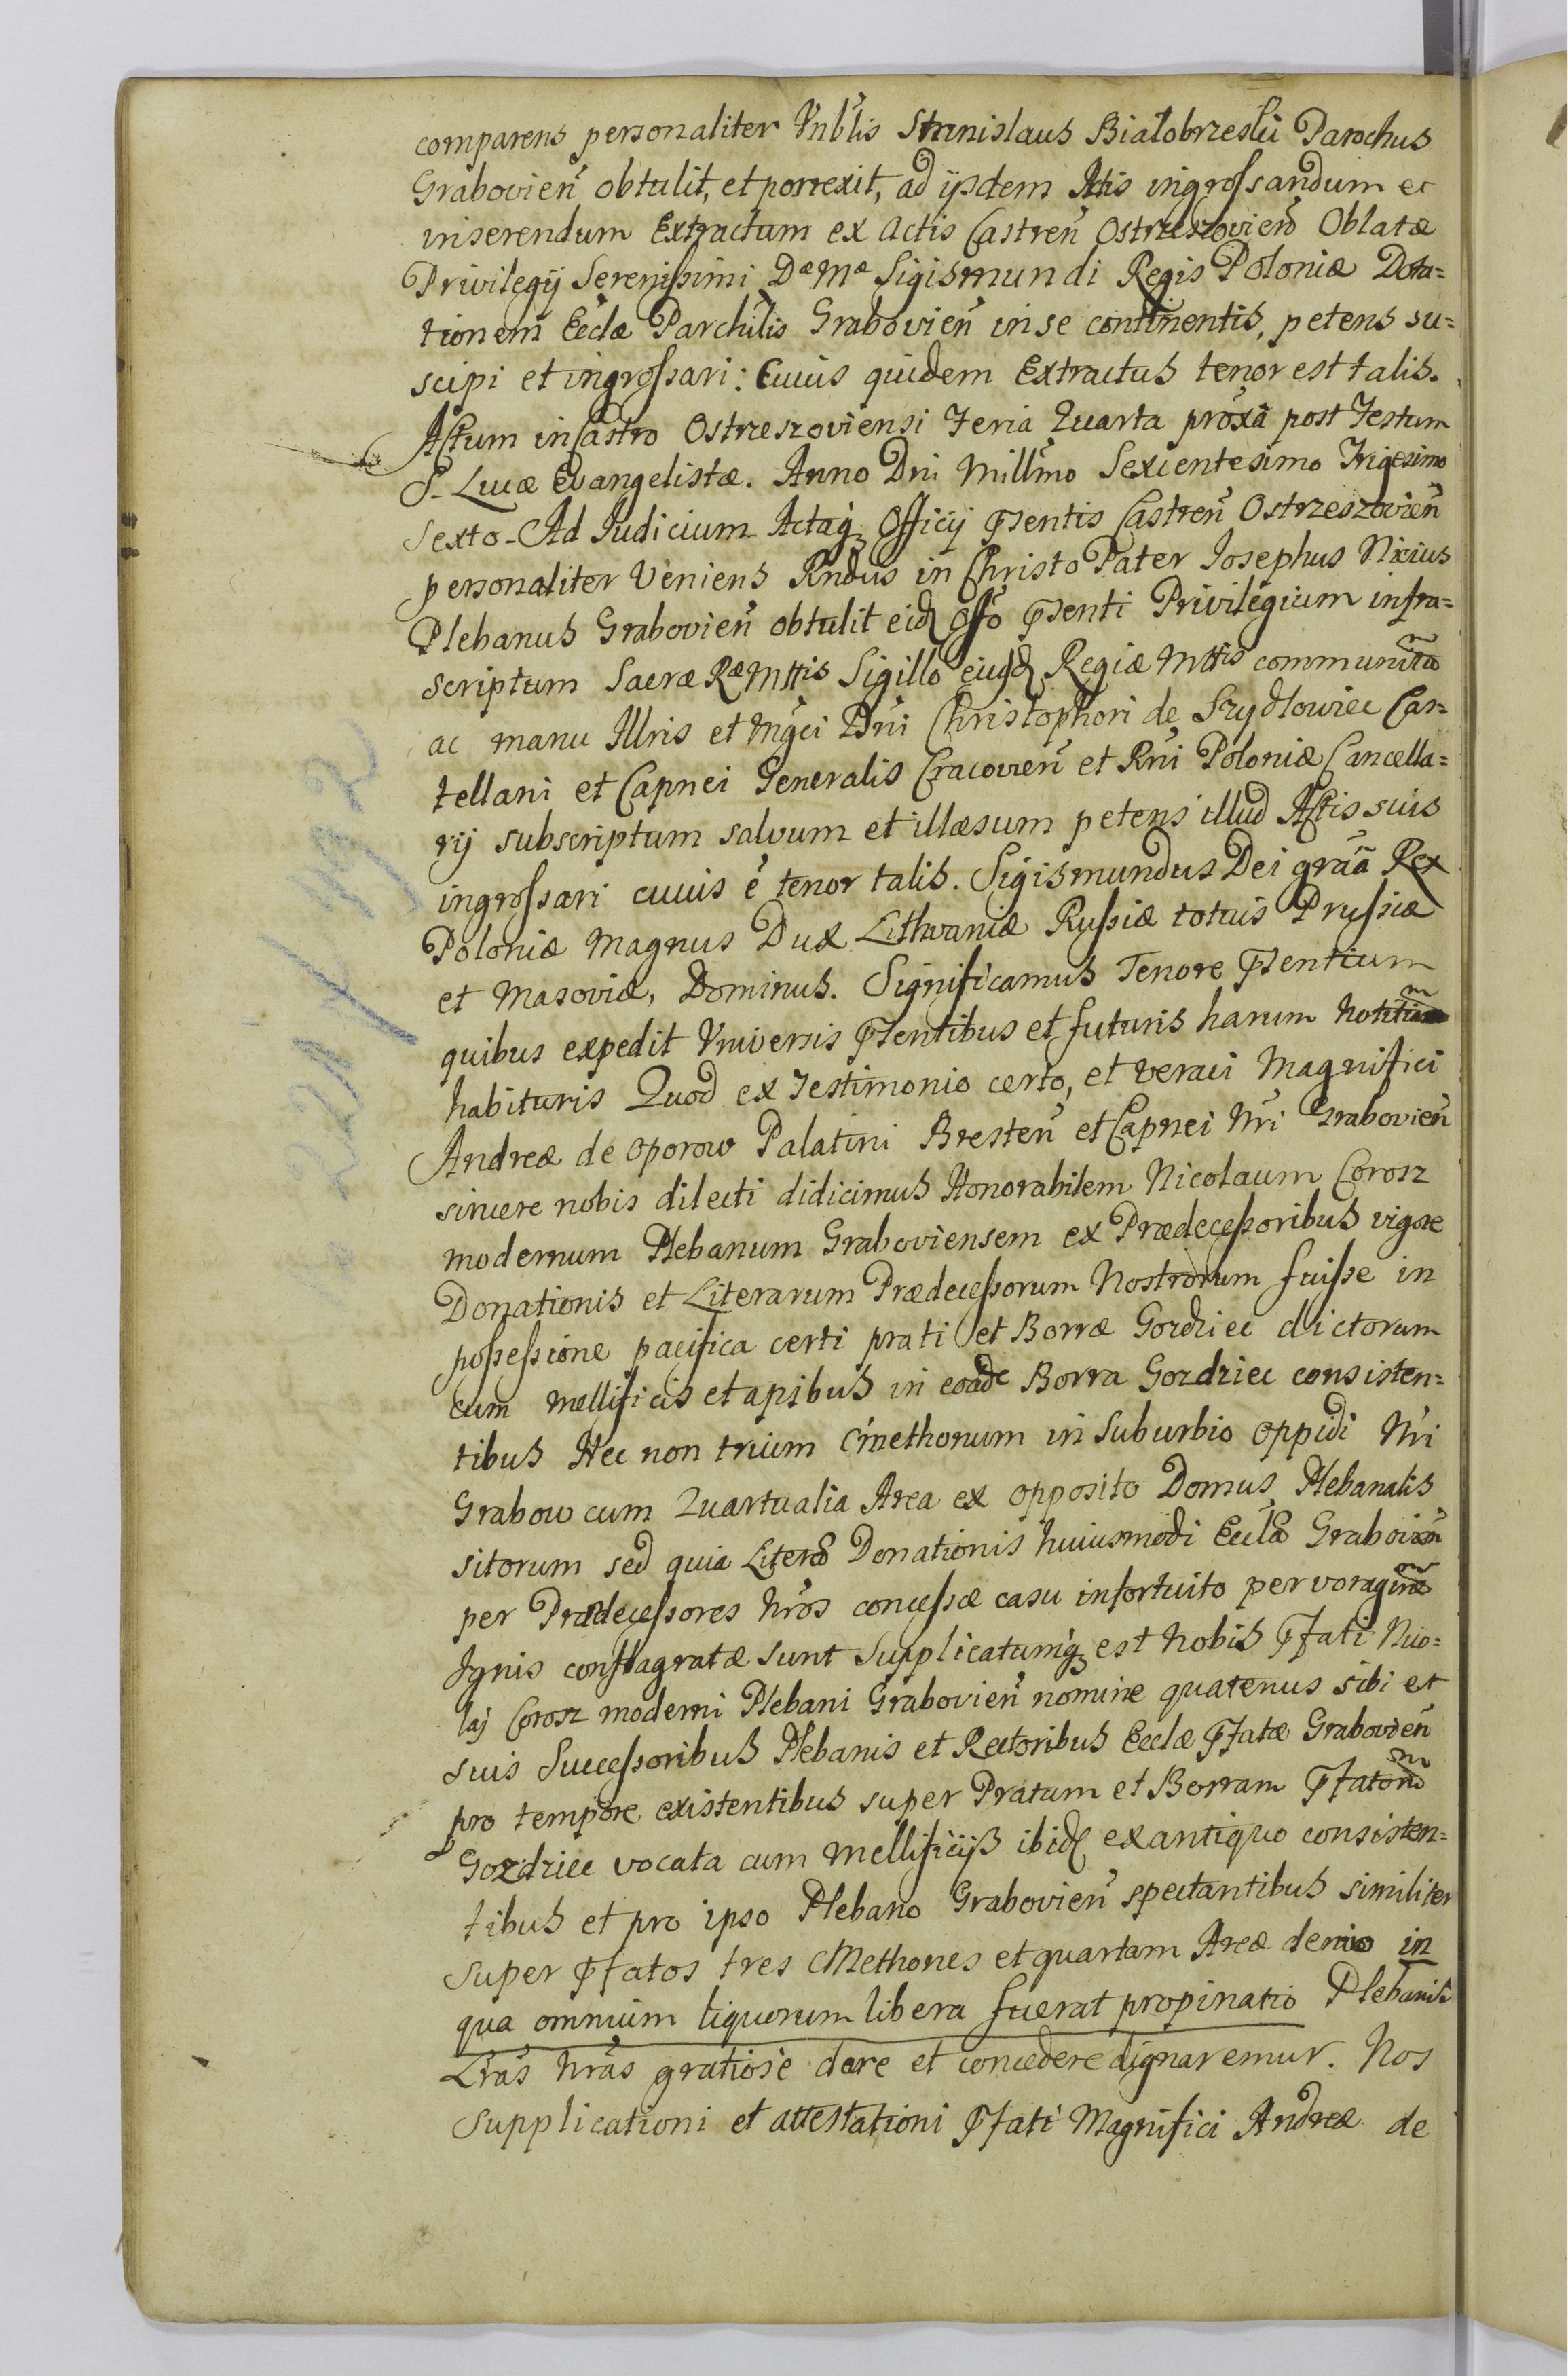 comparens personaliter Vnblis Stanislaus Białobrzeski Parochus
Grabovien̄ obtulit, et porrexit, ad ijsdem Actis ingrossandum et
inserendum Extractum ex Actis Castren̄ Ostrzeszovien̄ Oblatæ
Privilegij Serenissimi Dæ Mæ Sigismundi Regis Poloniæ Dota=
tionem Eccl̄æ Parchilis Grabovien̄ in se continentis, petens su=
scipi et ingrossari: Cuius quidem Extractus tenor est talis.
Actum in Castro Ostrzeszoviensi Feria Quarta prox̄a post Festum
S. Lucæ Evangelistæ. Anno Dni Mill̄mo Sexcentesimo Trigesimo
Sexto. Ad Judicium Actaq Officij p̄sentis Castren̄ Ostrzeszovien̄
personaliter Veniens Rn̄dus in Christo Pater Josephus Nixius
Plebanus Grabovien̄ obtulit eid Offo p̄senti Privilegium infra=
scriptum Sacræ Ræ Mttis Sigillo eiusd Regiæ Mttis communitū
ac manu Illris et Mgci Dn̄i Christophori de Szydłowiec Cas=
tellani et Capnei Generalis Cracovien̄ et Rn̄i Poloniæ Cancella=
rij subscriptum salvum et illæsum petens illud Actis suis
ingrossari cuius ē tenor talis. Sigismundus Dei grā̄a Rex
Poloniæ Magnus Dux Lithvaniæ Russiæ totius Prussiæ
et Masoviæ, Dominus. Significamus Tenore p̄sentium
quibus expedit Vniversis p̄sentibus et futuris harum notitiam
habituris Quod ex Testimonio certo, et veraci Magnifici
Andreæ de Oporow Palatini Bresten̄ et Capnei Nr̄i Grabovien̄
sincere nobis dilecti didicimus Honorabilem Nicolaum Corosz
modernum Plebanum Graboviensem ex Prædecessoribus vigore
Donationis et Literarum Prædecessorum Nostrorum fuisse in
possessione pacifica certi prati et Borræ Gozdziec dictorum
cum mellificis et apibus in eoadē Borra Gozdziec consisten=
tibus Nec non trium Cmethonum in Suburbio Oppidi Nr̄i
Grabow cum Quartualia Area ex opposito Domus Plebanalis
sitorum sed quia Literæ Donationis huiusmodi Eccl̄æ Grabovien̄
per Prædecessores Nr̄os concessæ casu infortuito per voraginē
Ignis conflagratæ sunt Supplicatumq est Nobis p̄fati Nico=
laj Corosz moderni Plebani Grabovien̄ nomine quatenus sibi et
suis Successoribus Plebanis et Rectoribus Ecclæ p̄fatæ Grabovien̄
pro tempore existentibus super Pratum et Borram p̄fatam
Gozdziec vocata cum Mellificijs ibid ex antiquo consisten=
tibus et pro ipso Plebano Grabovien̄ spectantibus similiter
super p̄fatos tres Cmethones et quartam Areæ denuo in
qua omnium liquorum libera fuerat propinatio Plebanis
Lr̄as Nr̄as gratiose dare et concedere dignaremur. Nos
Supplicationi et attestationi p̄fati Magnifici Andreæ de